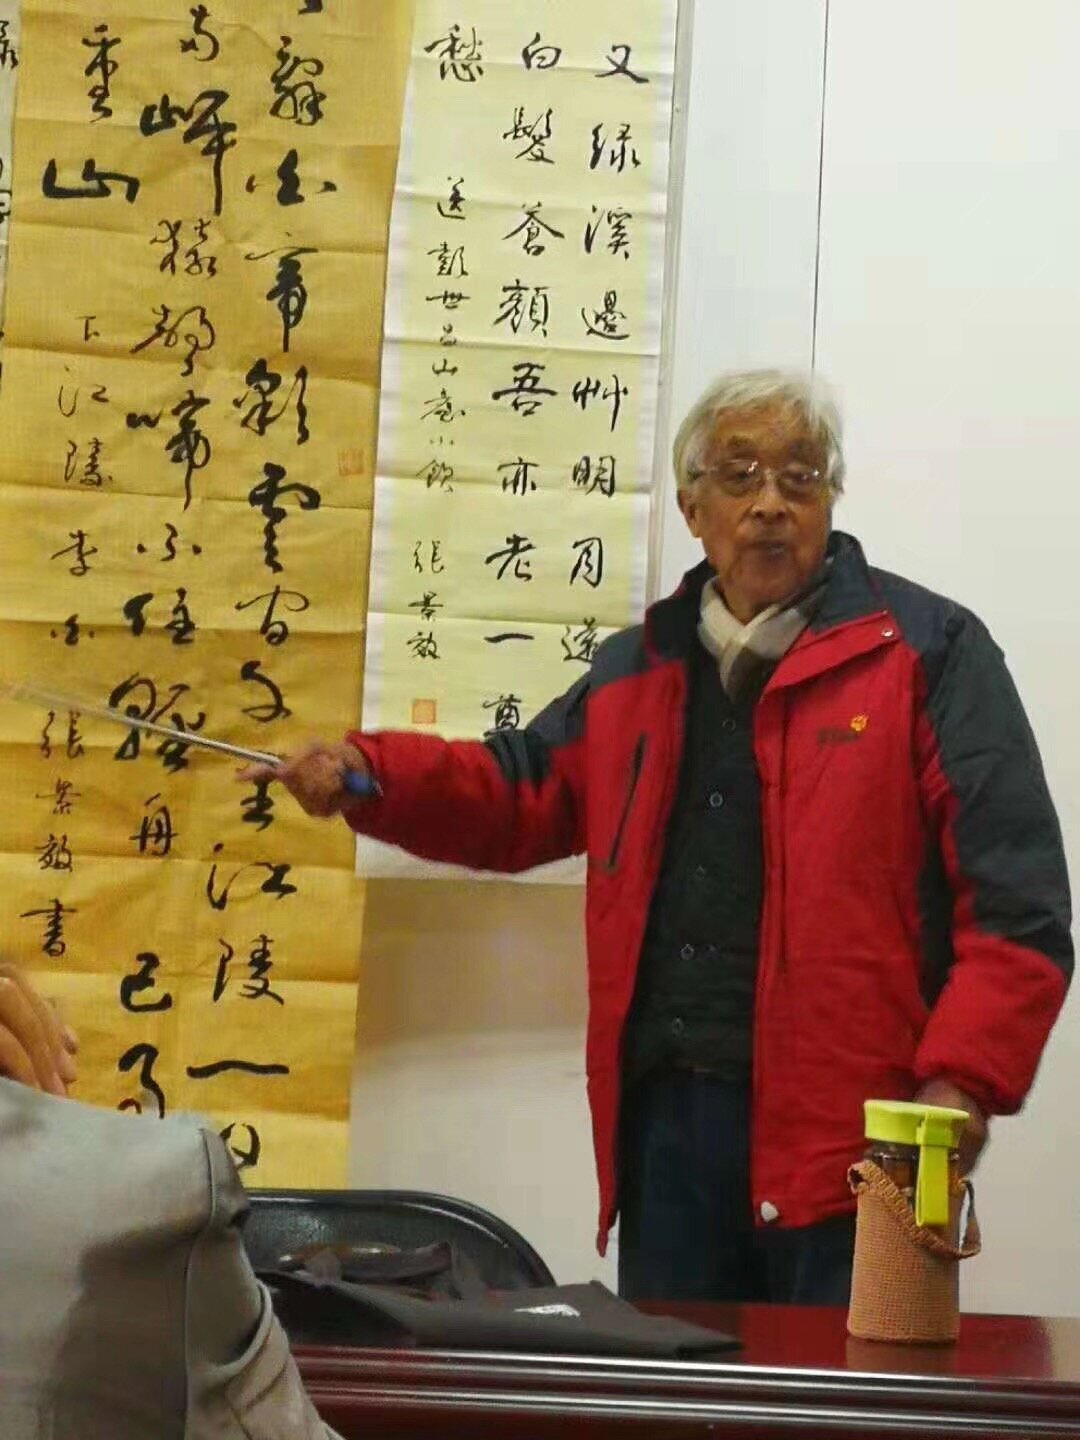 又绿溪邊艸明月遠
白髮蒼顔吾亦老一尊
愁
送世昌山小飲 張景效
辭白帝彩雲间千里江陵一日
两岸猿聲啼不住輕舟已過
重山
下江陵 李白 張景效書